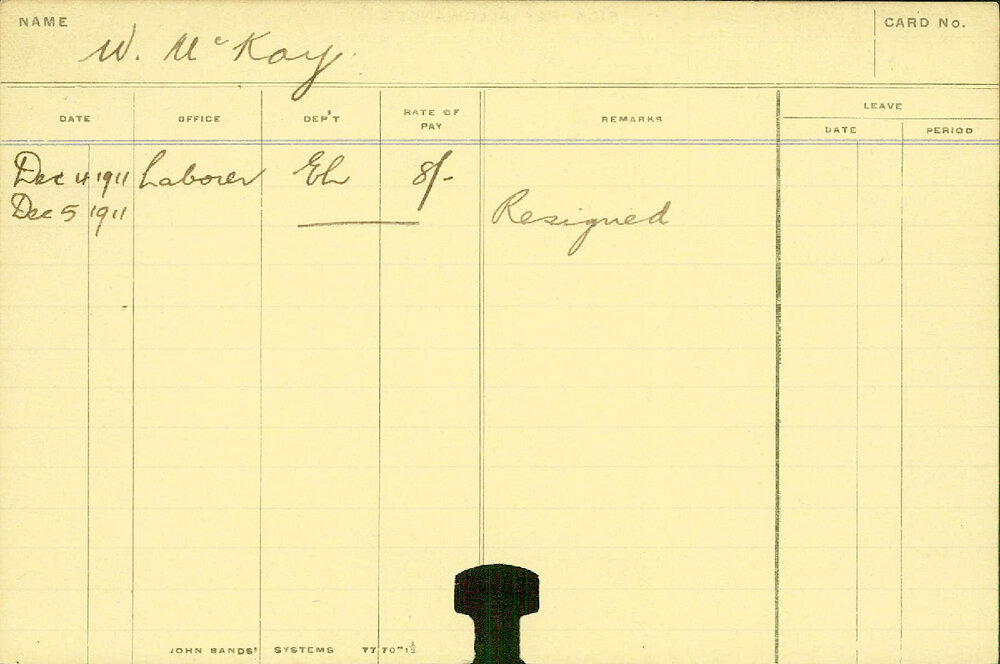 NAME W. McKay. CARD No.
DATE OFFICE DEP'T RATE OF PAY REMARKS LEAVE
DATE PERIOD
Dec 4 1911 Laborer Eh 8/-
Dec 5 1911 Resigned
JOHN SANDS' SYSTEMS